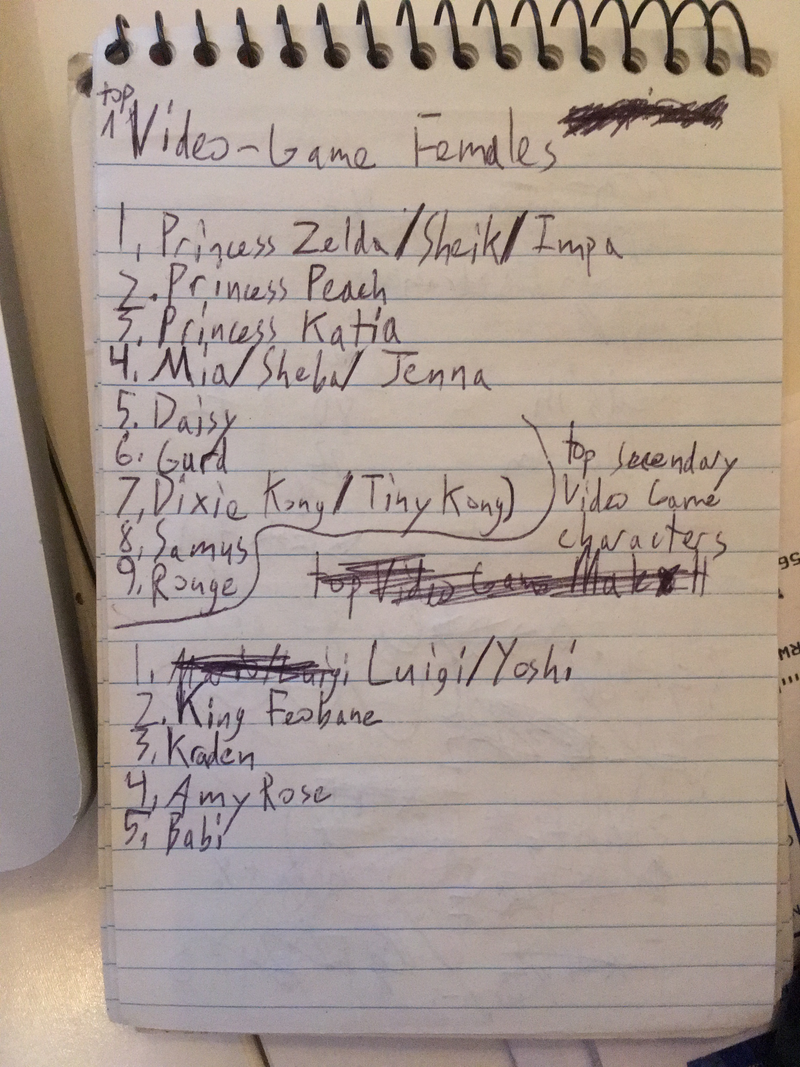 top
Video-Game Females
1. Princess Zelda/Sheik/Impa
2. Princess Peach
3. Princess Katia
4. Mia/Sheba/Jenna
5. Daisy
6. Gurd
7. Dixie Kong/Tiny Kong)
8. Samus
9. Rouge
top secendary
Video Game
characters
top Video Game
1. Mario/Luigi Luigi/Yoshi
2. King Feobane
3. Kraden
4. Amy Rose
5. Babi